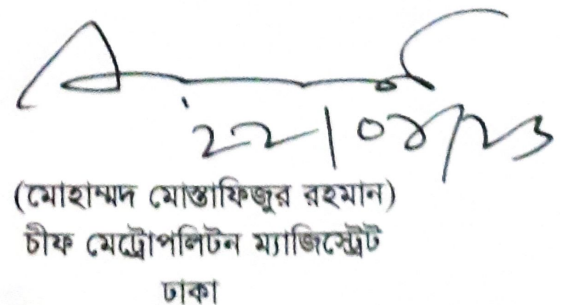 (মোহাম্মদ মোস্তাফিজুর রহমান)
চীফ মেট্রোপলিটন ম্যাজিস্ট্রেট
ঢাকা